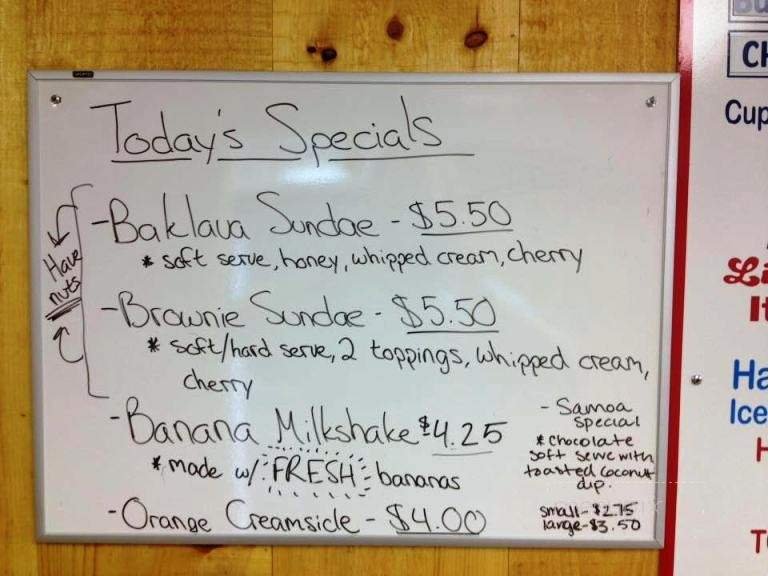 Today's Specials
Have
nuts
-Baklava Sundae - $5.50
* soft serve, honey, whipped cream, cherry
-Brownie Sundae - $5.50
* soft/hard serve, 2 toppings, whipped cream,
cherry
-Banana Milkshake $4.25
* made w/ FRESH bananas
-Orange Creamsicle - $4.00
- Samoa
special
* chocolate
soft serve with
toasted coconut
dip.
small - $2.75
large - $3.50
Cup
Li
It
Ha
Ice
H